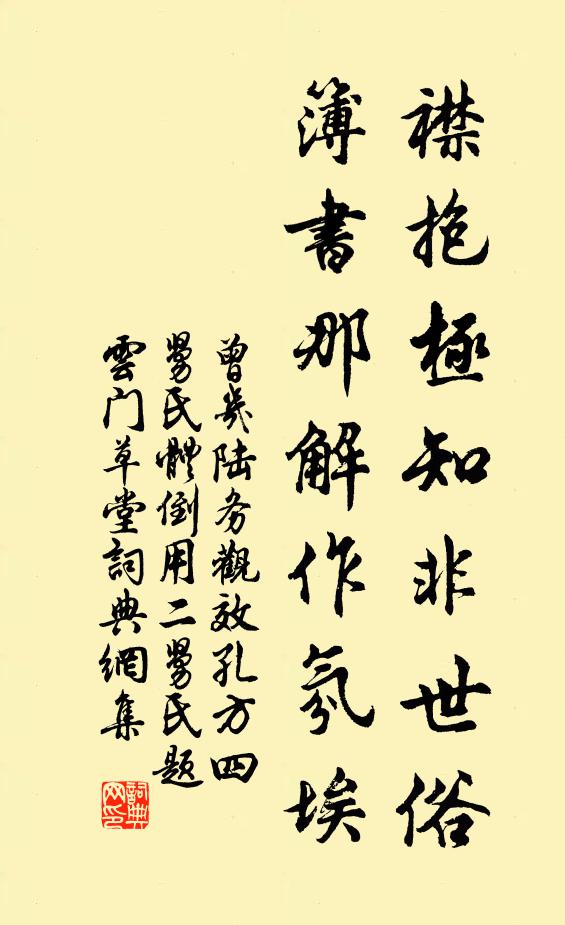 襟抱極知非世俗
簿書那解作氛埃
曾幾陆务觀效孔方四
舅氏體倒用二舅氏題
雲门草堂詞典網集
詞典网印